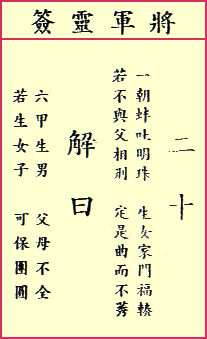 將軍靈簽
二十
一朝蚌吐明珠 生女家門福輳
若不與父相刑 定是曲而不莠
解曰
六甲生男 父母不全
若生女子 可保團圓